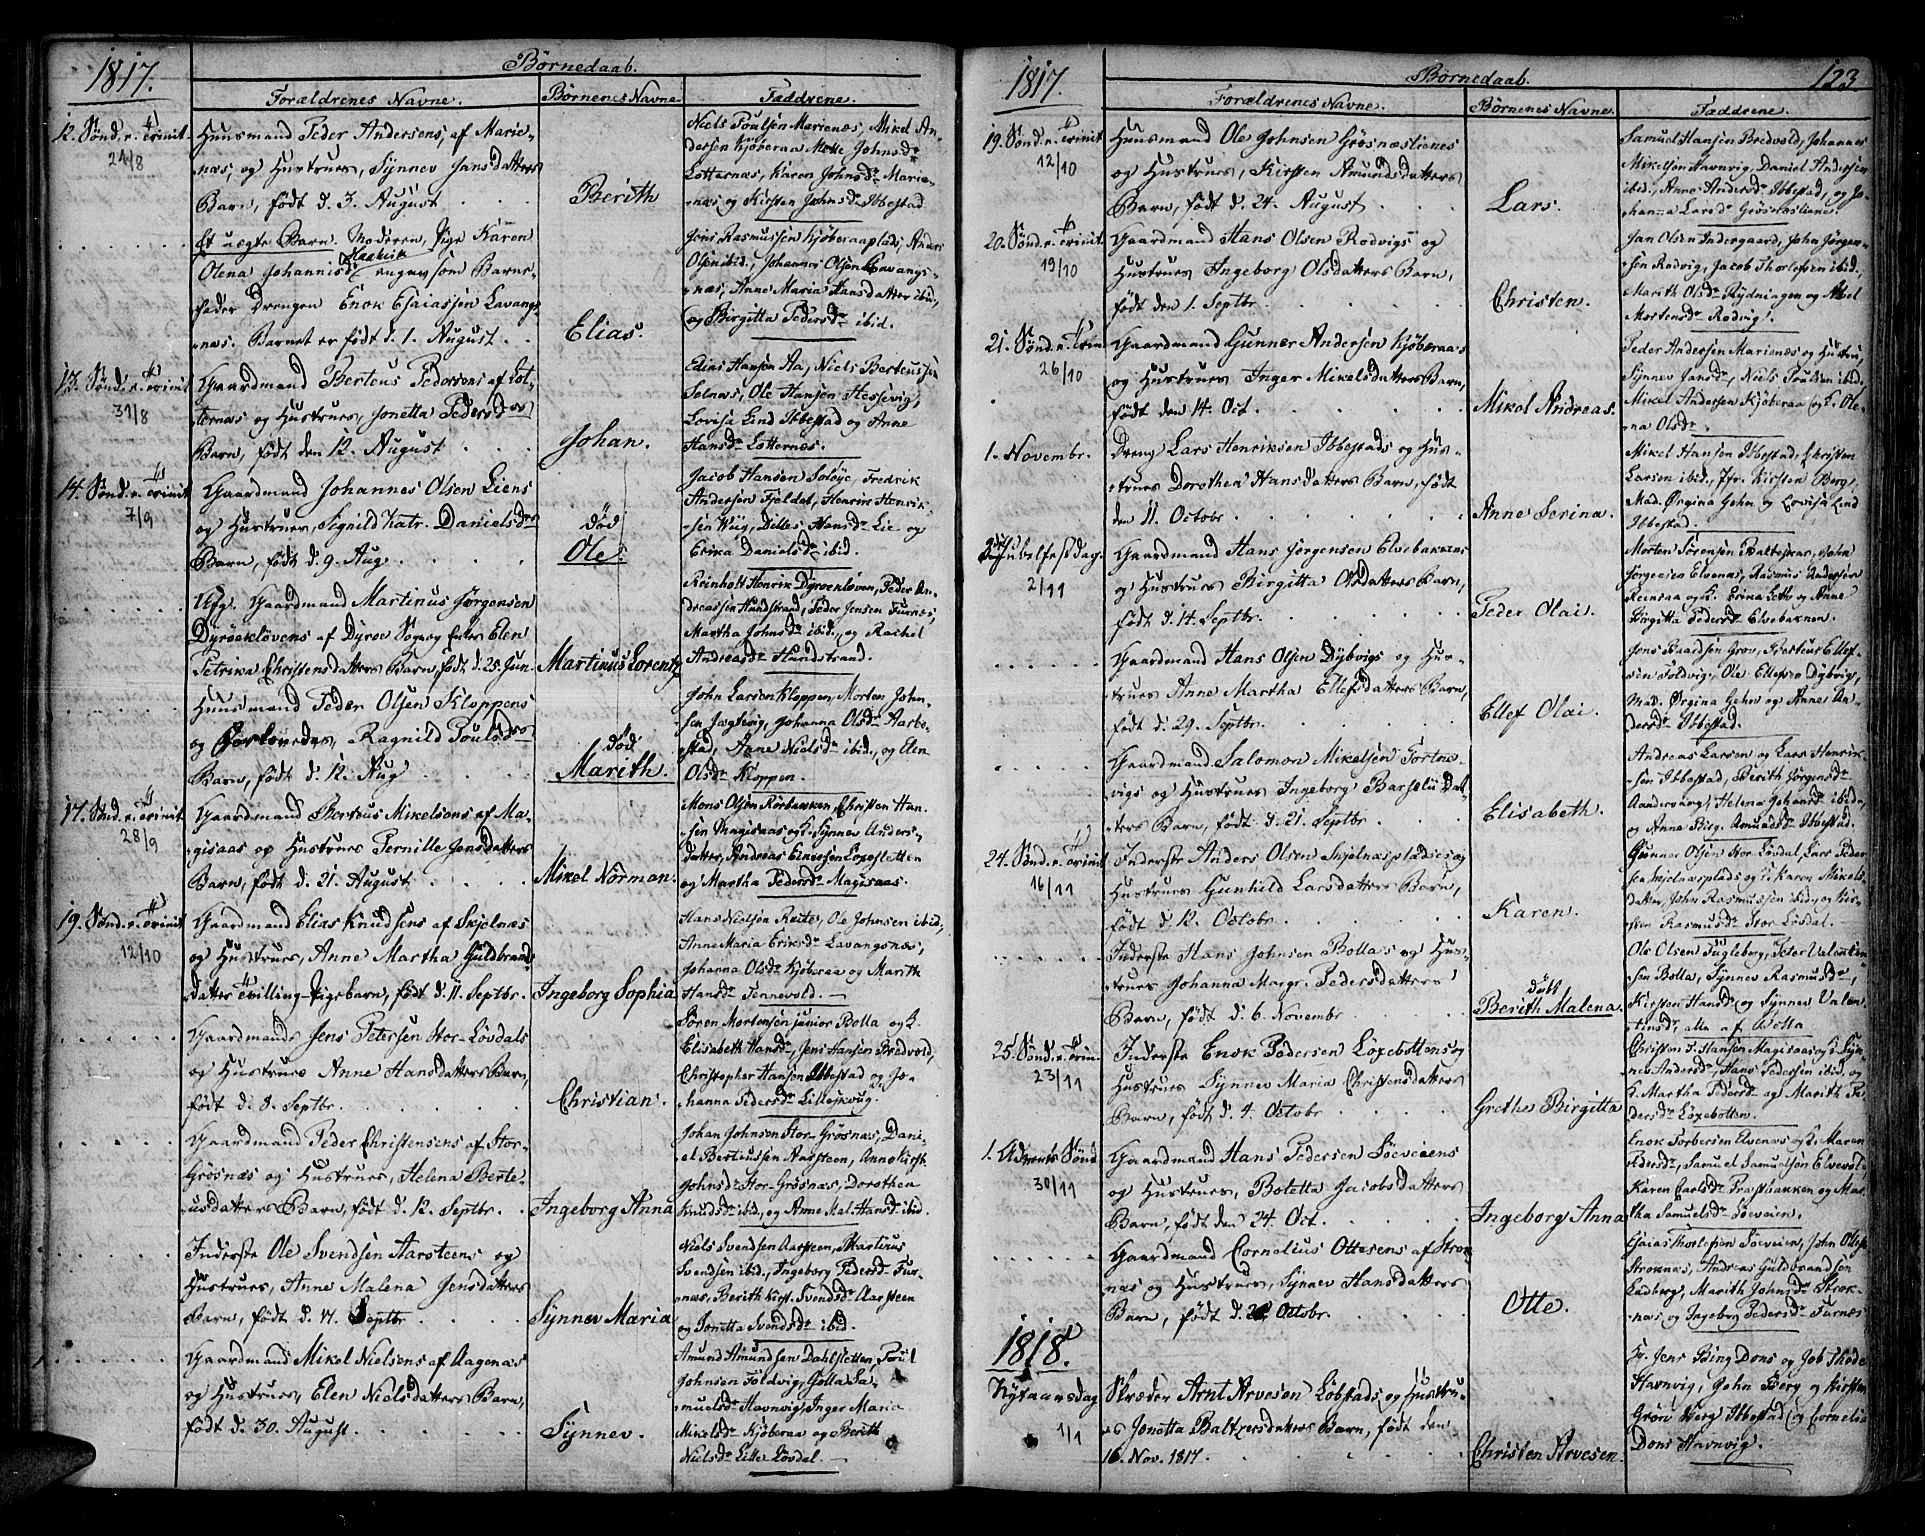 1817.
Børnedaab.
Forældrenes Navne.
Børnenes Navne
Faddrene.
12. Sønd. e. Trinit.
24/8
Huusmand Peder Andersens, af Marie-
næs, og Hustrues, Synnev Jansdatters
Barn, født d. 3. August
Berith
Niels Poulsen Marienæs, Mikel An-
dersen Kjøberaa Mette Johnsdr
Lotternæs, Karen Johnsdr Marie-
næs og Kirsten Johnsdr Ibbestad
Et uægte Barn. Moderen, Pige Karen
Olena Johannisdr Haavik angav som Barne-
fader Drengen Enok Esaiassen Lavangs-
næs. Barnet er født d. 1. August.
Elias.
Jens Rasmussen Kjøberaaplads, Anders
Olsen ibid., Johannes Olsen Lavangs-
næs, Anne Maria Hansdatter ibid,
og Birgitta Pedersdr ibid.
13. Sønd. e. Trinit.
31/8
Gaardmand Berteus Pedersens af Lot-
ternæs og Hustrues, Jonetta Pedersdrs
Barn, født den 12. August
Johan.
Edias Hansen Aa, Niels Berteussen
Selnæs, Ole Hansen Hessevig,
Lovisa Lind Ibbestad og Anne
Hansdr Lotternæs.
14. Sønd. e. Trinit.
7/9
Gaardmand Johannes Olsen Liens
og Hustrues, Segnild Katr. Danielsdrs
Barn, født d. 9. Aug.
død
Ole.
Jacob Hansen Soløye, Fredrik
Andersen Fjeldal, Henrik Henrik-
sen Wiig, Dilles Hansdr Lie og
Erika Danielsdr ibid.
Afg. Gaardmand Martinus Jørgensen
Dyrøekløvens af Dyrøe Sogn og Enkes Elen
Petrika Christensdatters Barn, født d. 25. Jun.
Martinus Lorentz
Reinholt Henrik Dyrøekløven, Peder An-
dreassen Hundstrand, Peder Jensen Furnæs,
Martha Johnsdr ibid., og Rachel
Andreasdr Hundstrand.
Huusmand Peder Olsen Kloppens
og Ragnild Poulsdrs
Barn, født d. 12. Aug
død
Marith.
John Larsen Kloppen, Morten John-
sen Johanna Olsdr Aarbo-
stad, Anne Nielsdr ibid., og Elen
Olsdr Kloppen.
17. Sønd. e. Trinit.
28/9
Gaardmand Berteus Mikelsens af Ma-
gisaas og Hustrues Pernille Jensdatters
Barn, født d. 21. August
Mikel Norman.
Mons Olsen Rørbakken, Christen Han-
sen Magisaas og K. Synnev Anders-
datter, Andreas Løxesletten
og Martha Pedersdr Magisaas.
19. Sønd. e. Trinit.
12/10
Gaardmand Elias Knudsens af Skjelnæs
og Hustrues, Anne Martha Guldbrands-
datter Tvilling-Pigebarn, født d. 11. Septbr.
Ingeborg Sophia
Hans Nielsen Røite, Ole Johnsen ibid.,
Anne Maria Eriksdr Lavangsnæs,
Johanna Olsdr Kjøberaa og Marith
Hansdr Tennevold.
Gaardmands Jens Petersen Stor-Løvdals
og Hustrues Anne Hansdatters Barn,
født d. 8. Septbr.
Christian.
Søren Mortensen junior Bolla og K.
Elisabeth Hansdr, Jens Hansen Bredvold,
Christopher Hansen Ibbestad og Jo-
hanna Pedersdr
Gaardmand Peder Christensens af Stor-
Grøsnæs og Hustrues, Helena Berte-
usdatters Barn, født d. 12. Septbr.
Ingeborg Anna
Johan Johnsen Stor-Grøsnæs, Dani-
el Berteussen Aarsteen, Anne Kirst.
Johnsdr Stor-Grøsnæs, Dorothea
Knudsdr ibid, og Anne Mal. Hansdr ibid.
Inderste Ole Svendsen Aarsteens og
Hustrues, Anne Malena Jensdatters
Barn, født d. 17. Septbr
Synnev Maria
Niels Svendsen Aarsteen, Martinus
Svendsen ibid., Ingeborg Pedersdr Fur-
næs, Berith Kirst. Svendsdr Aarsteen
og Jonetta Svendsdr ibid.
Gaardmand Mikel Nielsens af Aagenæs
og Hustrues, Elen Nielsdatters Barn,
født d. 30. August.
Synnev.
Amund Amundsen Dahlsletten, Poul
Johnsen Foldvig, Golla Sa-
muelsdr Havnvig, Inger Maria
Mikelsdr Kjøberaa og Berith
Nielsdr Lille Løvdal
1817.
Børnedaab.
123
Forældrenes Navne.
Børnenes Navne.
Faddrene.
19. Sønd. e. Trinit.
12/10
Huusmand Ole Johnsen Grøsnæslienes
og Hustrues, Kirsten Amundsdatters
Barn, født d. 24. August
Lars.
Samuel Hansen Bredvold, Johannes
Mikelsen Havnvig, Daniel Andersen
ibid., Anne Andersdr Ibbestad, og Jo-
hanna Larsdr Grøsnæsliene.
20. Sønd. e. Trinit.
19/10
Gaardmand Hans Olsen Rodvigs og
Hustrues Ingeborg Olsdatters Barn,
født den 1. Septbr.
Christen.
Jan Olsen Indergaard, John Jørgen-
sen Rodvig, Jacob Thorlefsen ibid.,
Marith Olsdr Rydningen og Abel
Mortensdr Rodvig.
21. Sønd. e. Trin.
26/10
Gaardmand Gunner Andersen Kjøberaas
og Hustrues Inger Mikelsdatters Barn,
født den 14. Oct.
Mikal Andreas.
Peder Andersen Marienæs og Hustru
Synnev Jansdr, Niels Poulsen ibid.
Mikel Andersen Kjøberaa og P. Ole-
na Olsdr.
1. Novembr.
Dreng Lars Henriksen Ibbestads og Hus-
trues Dorothea Hansdatters Barn, født
den 11. Octobr.
Anne Serina.
Mikel Hansen Ibbestad, Christen
Larsen ibid., Jfr. Kirsten Berg,
Mad. Ørgina Gehn og Lovisa Lind
Ibbestad.
Jubelfestdag.
2/11
Gaardmand Hans Jørgensen Elvebakkens
og Hustrues Birgitta Olsdatters Barn,
født d. 14. Septbr.
Peder Olai.
Morten Sørensen Balteskar, John
Jørgensen Elvenæs, Rasmus Andersen
Reinsaa og K. Erika Lotto og Anne
Birgitta Pedersdr Elvebakken.
Gaardmand Hans Olsen Dybvigs og Hus-
trues Anne Martha Ellefsdatters Barn,
født d. 29. Septbr.
Ellef Olai.
Jens Baardsen Grov, Berteus Ellef-
sen Foldvig, Ole Ellefsen Dybvig,
Mad. Ørgina Gehn og Anne An-
dersdr Ibbestad.
Gaardmand Salomon Mikelsen Forten-
vigs og Hustrues Ingeborg Barselii Dat-
ters Barn, født d. 21. Septbr.
Elisabeth.
Andreas Larsen og Lars Henrik-
sen Ibbestad, Berith Jørgensdr
Aandervaag, Helena Johansdr ibid.,
og Anne Birg. Amundsdr Ibbestad.
24. Sønd. e. Trinit.
16/11
Inderste Anders Olsen Skjelnæsplads og
Hustrues Gunhild Larsdatters Barn,
født d. 12. Octobr.
Karen.
Gunner Olsen Stor Løvdal, Lars Peder-
sen Skjelnæsplads og K. Karen Mikels-
datter, John Rasmussen ibid. og Kir-
sten Rasmusdr Stor Løvdal.
Inderste Hans Johnsen Bollas og Hus-
trues Johanna Margr. Pedersdatters
Barn, født d. 6. Novembr
død
Berith Malena.
Ole Olsen Fugleberg, Peter Valentin-
sen Bolla, Synnev Rasmusdr,
Kirsten Hansdr og Synnev Valen-
tinsdr, alle af Bolla
25. Sønd. e. Trin.
23/11
Inderste Enok Pedersen Løxebottens og
Hustrues Synnev Maria Christensdatters
Barn, født d. 4. Octobr
Grethe Birgitta
Christen Hansen Magisaas og K. Syn-
nev Andersdr, Hans Pedersen ibid. og
K. Martha Pedersdr og Marith Pe-
dersdr Løxebotten.
1. Advents Sønd.
30/11
Gaardmand Hans Pedersen Søeveiens
og Hustrues, Boletta Jacobsdatters
Barn, født den 24. Oct.
Ingeborg Anna
Enok Torbersen Elvenæs og K. Maren
Pedersdr, Samuel Samuelsen Elvevold,
Karen Carlsdr Præstbakken og Mar-
tha Samuelsdr Søeveien.
Gaardmand Cornelius Ottesens af Strok-
næs og Hustrues, Synnev Hansdatters
Barn, født d. Octobr.
Otte.
Esaias Thorlefsen Søeveien, John Ottesen
Stroknæs, Andreas Guldbrandsen
Ladberg, Marith Johnsdr Strok-
næs og Ingeborg Pedersdr Furnæs
1818.
Nytaarsdag
1/1
Skræder Arnt Arvesen Løbstads og Hustru-
es Jonetta Baltzersdatters Barn, født den
16. Nov. 1817.
Christen Arvesen.
Hr. Jens Bing Dons og Job Thode
Havnvig, John Berg og Kirsten
Grøn Berg Ibbestad og Cornelia
Dons Havnvig.